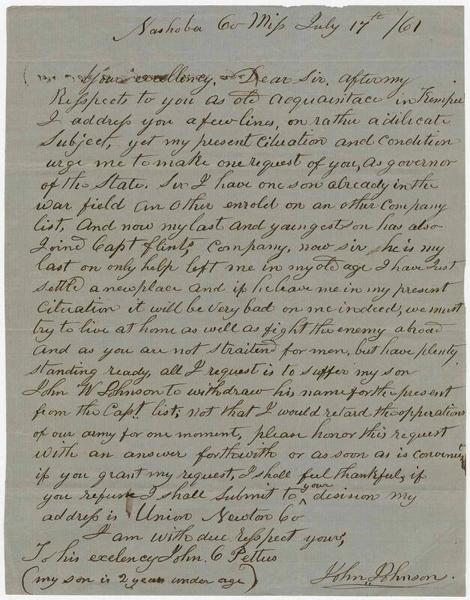 Nashoba Co Miss July 17th /61
Your excellency, Dear Sir. after my
Respects to you as old acquaintace in Kemper
I address you a few lines, on rather a dilicate
Subject, yet my present Cituation and Condition
urge me to make one request of you, as governor
of the State. Sir I have one son already in the
war field an other enrold on an other Company
list, and now my last and youngest son has also
Joind Capt Flints, Company, now sir he is my
last on only help left me in my old age I have Just
settled a new place and if he leave me in my present
Cituation it will be very bad on me indeed, we must
try to live at home as well as fight the enemy abroad
and as you are not straitend for men, but have plenty
standing ready, all I request is to suffer my son
John W Johnson to withdraw his name for the present
from the Capt. list; not that I would retard the opperations
of our army for one moment, please honor this request
with an answer forthwith or as soon as is convenient
if you grant my request, I shall feel thankful, if
you refuse I shall submit to your disision my
address is Union Newton Co
I am with due respect yours,
To his exelency John. J Pettus
(my son is 2, years under age)
John Johnson.